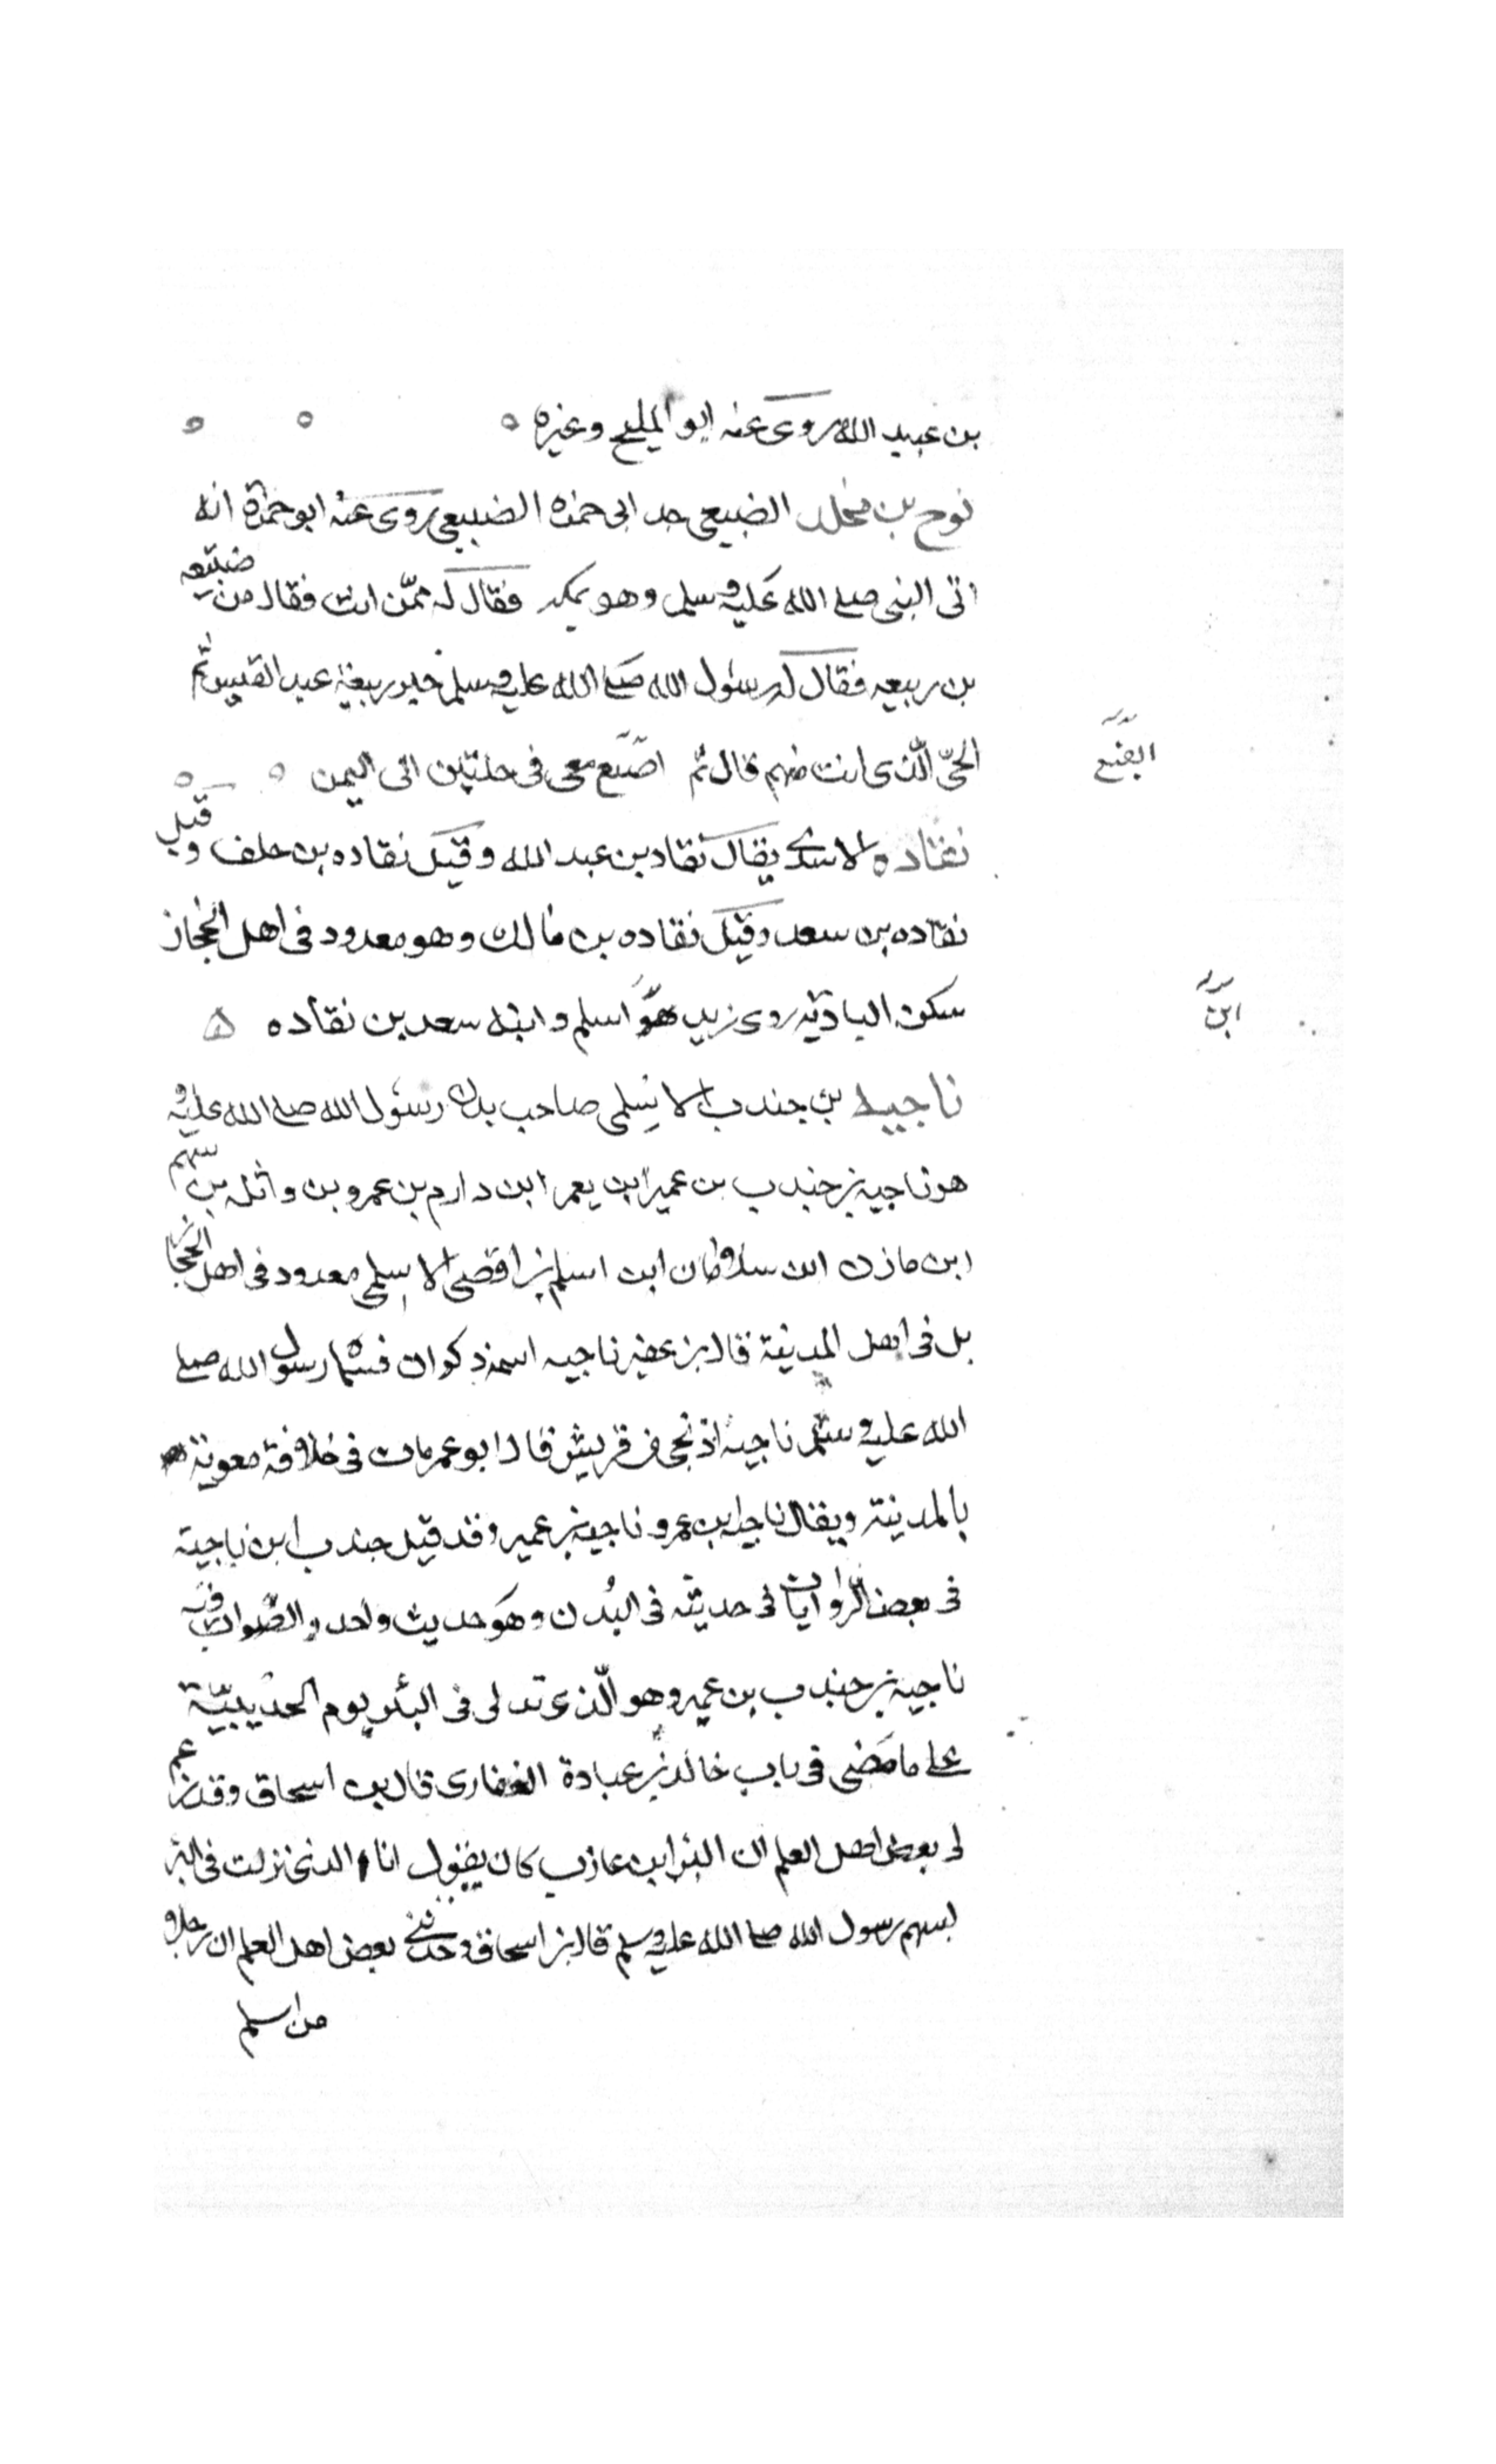 بن عبيد الله روى عنه ابو المليح وغيره
نوح بن مخلد الضبيعى جد ابى حمزه الضبيعى روى عنه ابو حمزة انه
اتى النبى صلى الله عليه وسلم وهو بمكه فقال له ممّن انت فقال من ضبيعه
بن ربيعه فقال له رسول الله صلى الله عليه وسلم خير ربيعة عبد القيس ثم
الحىّ الّذى انت منهم قال ثم اصنع معى فى حلتين الى اليمن
ابضع
نقاده الاسدى يقال نقاد بن عبد الله وقيل نقاده بن خلف وقيل
نقاده بن سعد وقيل نقاده بن مالك وهو معدود فى اهل الحجاز
سكن البادية روى زيد هو اسلم وابنه سعد بن نقاده
ابن
ناجيه بن جندب الاسلمى صاحب بدن رسول الله صلى الله عليه و
هو ناجيه بن جندب بن عمير ابن يعمر ابن دارم بن عمرو بن واثله بن سهم
ابن مازن ابن سلامان ابن اسلم بن اقصى الاسلمى معدود فى اهل الحجا
بل فى اهل المدينة قال بن عفير ناجيه اسمه ذكوان فسماه رسول الله صلى
الله عليه وسلم ناجيه اذ نجى من قريش قال ابو عمر مات فى خلافة معوية
بالمدينة ويقال ناجيه بن عمرو ناجيه بن عمير وقد قيل جندب ابن ناجية
فى بعض الروايات فى حديثه فى البُدن وهو حديث واحد والصّواب فيه
ناجيه بن جندب بن عمير وهو الّذى تدلى فى البئر يوم الحديبيّة
على ما مضى فى باب خالد بن عبادة الغفارى قال بن اسحاق وقد زعم
لى بعض اهل العلم ان البرا بن عازب كان يقول انا الذى نزلت فى البئر
بسهم رسول الله صلى الله عليه وسلم قال بن اسحاق وحدثنى بعض اهل العلم ان رجلا
من اسلم